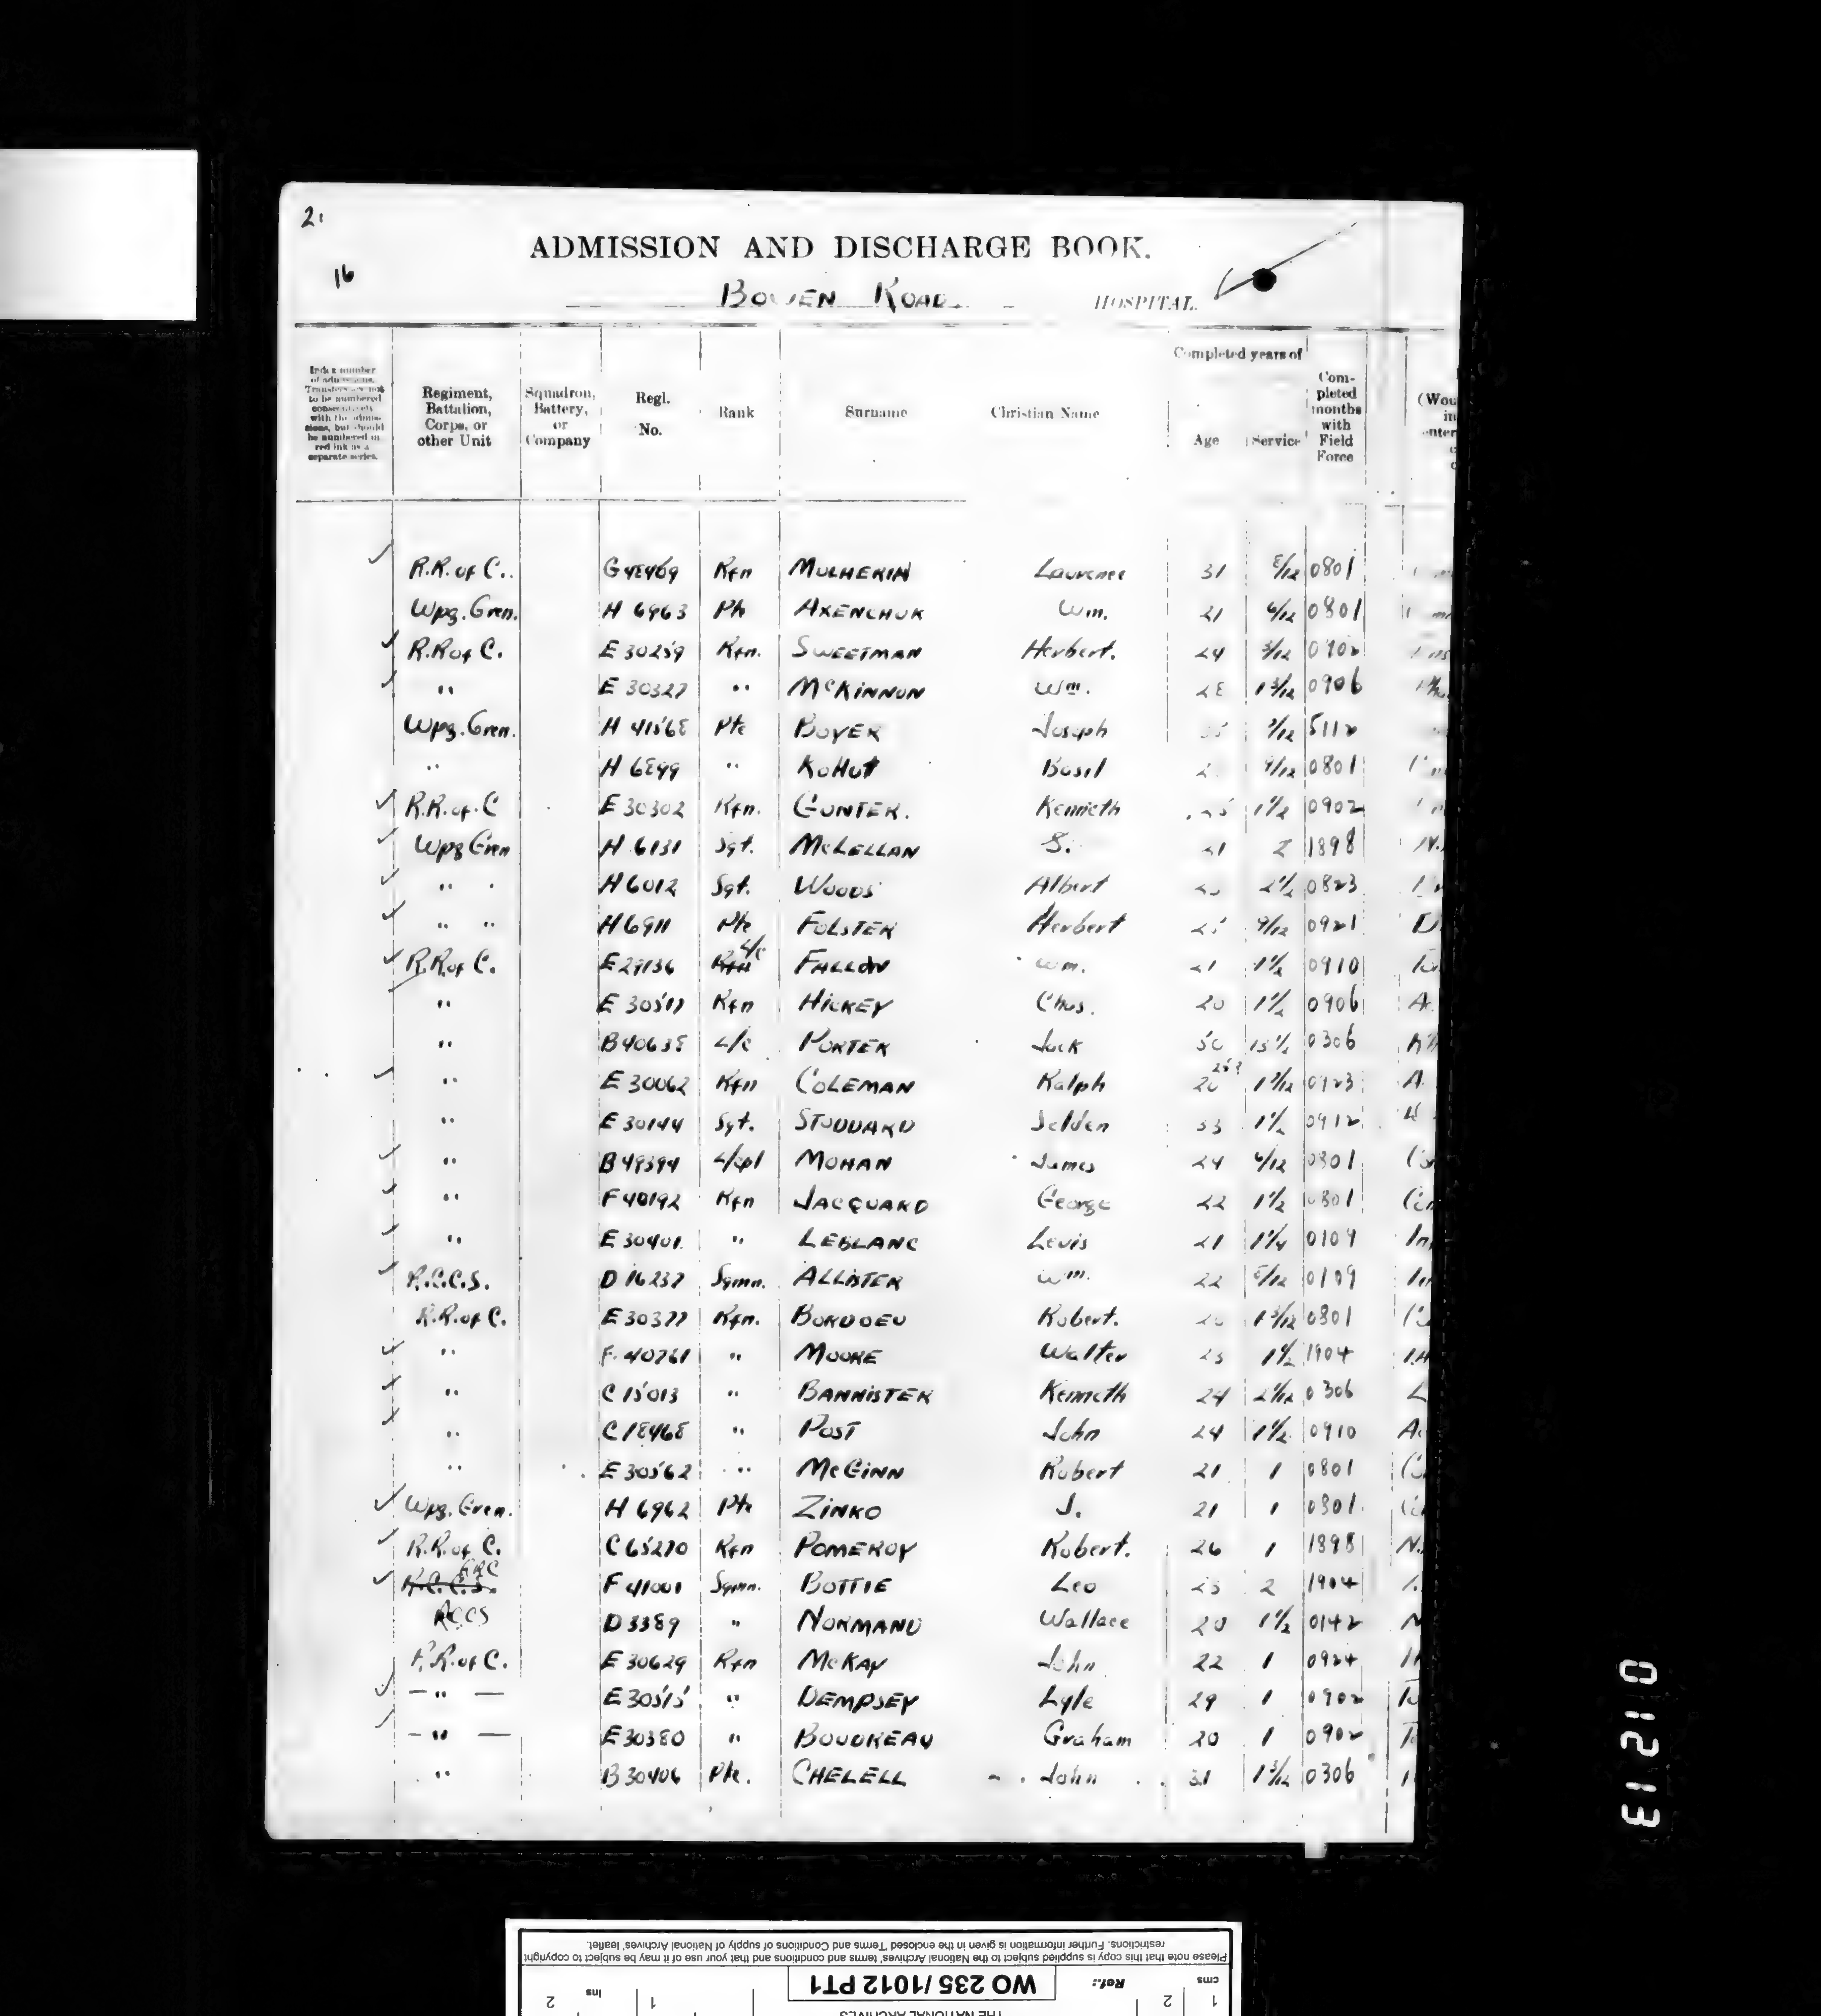 21
ADMISSION AND DISCHARGE BOOK.
16
BOWEN ROAD HOSPITAL.
Index number of admissions. Transfers are not to be numbered consecutively with the admissions, but should be numbered in red ink as a separate series.
Regiment, Battalion, Corps, or other Unit
Squadron, Battery, or Company
Regl. No.
Rank
Surname
Christian Name
Completed years of
Age
Service
Completed months with Field Force
(Wou
R.R. of C. Rfn MULHERIN Laurence 31 8/12 0801
Wpg. Gren. H 6963 Pte AXENCHUK Wm. 21 6/12 0801
R.R of C. E 30259 Rfn. SWEETMAN Herbert. 24 3/12 0902
" E 30327 " McKINNON Wm. 28 1 3/12 0906
Wpg. Gren. H 41568 Pte BOYER Joseph 5112
" H 6899 " KOHUT Basil 9/12 0801
R.R. of C E 30302 Rfn. GUNTER. Kenneth 25 1 1/2 0902
Wpg Gren H 6131 Sgt. McLELLAN S. 21 2 1898 N.
" H 6012 Sgt. WOODS Albert 2 1/2 0823
" " H 6911 Pte FOLSTER Herbert 25 9/12 0921 D
R.R. of C. E 29136 Rfn L/c FALLON Wm. 21 1 1/2 0910
" E 30517 Rfn HICKEY Chas. 20 1 1/2 0906 A
" B 40638 L/c PORTER Jack 50 0306
" E 30062 Rfn COLEMAN Ralph 20 25? 0923 A
" E 30144 Sgt. STODDARD Selden 33 1 1/2 0912
" B 49394 L/cpl MOHAN James 24 6/12 0801
" F 40192 Rfn JACQUARD George 22 1 1/2 0801
" E 30401 " LEBLANC Levis 21 1 1/4 0109 In
R.C.C.S. D 16237 Sgmn. ALLISTER Wm. 22 8/12 0109
R.R. of C. E 30377 Rfn. Robert. 1 3/12 0801
" F 40761 " MOORE Walter 23 1 1/2 1904
" C 15013 " BANNISTER Kenneth 24 0306 L
" C 18468 " POST John 24 1 1/2 0910 A
" E 30562 " McGINN Robert 21 1 0801
Wpg. Gren. H 6962 Pte ZINKO J. 21 1 0801
R.R. of C. C 65270 Rfn POMEROY Robert. 26 1 1898 N.
R.C.C.S. F 41001 Sgmn. BOTTIE Leo 23 2 1904
RCCS D 3389 " NORMAND Wallace 20 1 1/2 0142 N
R.R. of C. E 30629 Rfn McKAY John 22 1 0924 H
— " — E 30515 " DEMPSEY Lyle 29 1 0902
— " — E 30380 " BOUDREAU Graham 20 1 0902
" B 30406 Pte. CHELELL John 31 1 3/12 0306
01213
Please note that this copy is supplied subject to the National Archives' terms and conditions and that your use of it may be subject to copyright
restrictions. Further information is given in the enclosed 'Terms and Conditions of supply of National Archives' leaflet.
cms 1 2 Ref.: WO 235/1012 PT1 1 ins 2
THE NATIONAL ARCHIVES